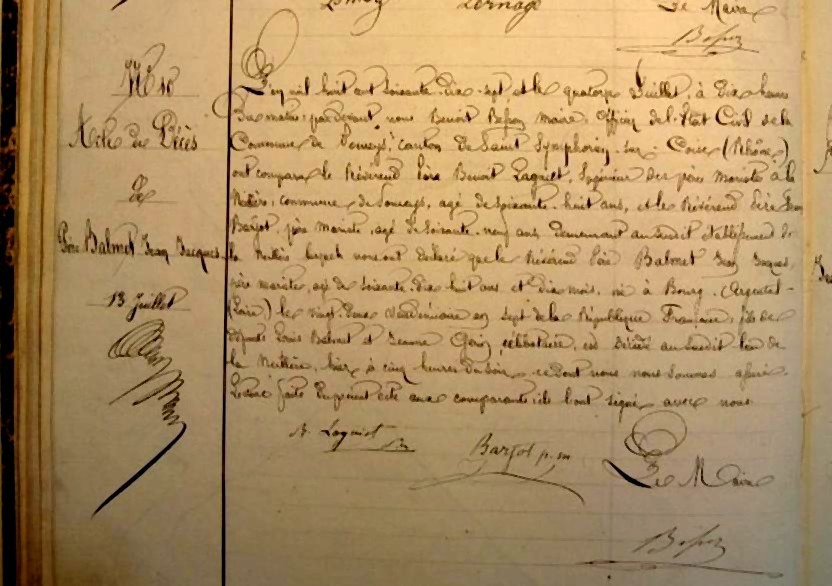 Le Maire
N° 10
Acte de Décès
de
Père Balmet Jean Jacques
13 Juillet
L'an mil huit cent soixante-dix-sept et le quatorze Juillet, à dix heures
du matin, par devant nous Benoit maire, officier de l'Etat Civil de la
Commune de canton de Saint Symphorien-sur-Coise (Rhône)
ont comparu le Révérend Père Benoit Lagniet, Supérieur des pères maristes à la
Neilière, commune de agé de soixante-huit ans, et le Révérend Père Jean
Barjot, père mariste, agé de soixante-neuf ans demeurant au susdit établissement de
la Neilière lesquels nous ont déclaré que le Révérend Père Balmet Jean Jacques,
père mariste, agé de soixante-dix huit ans et dix mois, né à Bourg-Argental
(Loire) le vingt-deux vendémiaire an sept de la République Française, fils de
défunts Louis Balmet et Jeanne célibataire, est décédé au susdit lieu de
la Neilière, hier à cinq heures du soir, ce dont nous nous sommes assuré.
Lecture faite du présent acte aux comparants ils l'ont signé avec nous
B. Lagniet
Barjot p. m
Le Maire